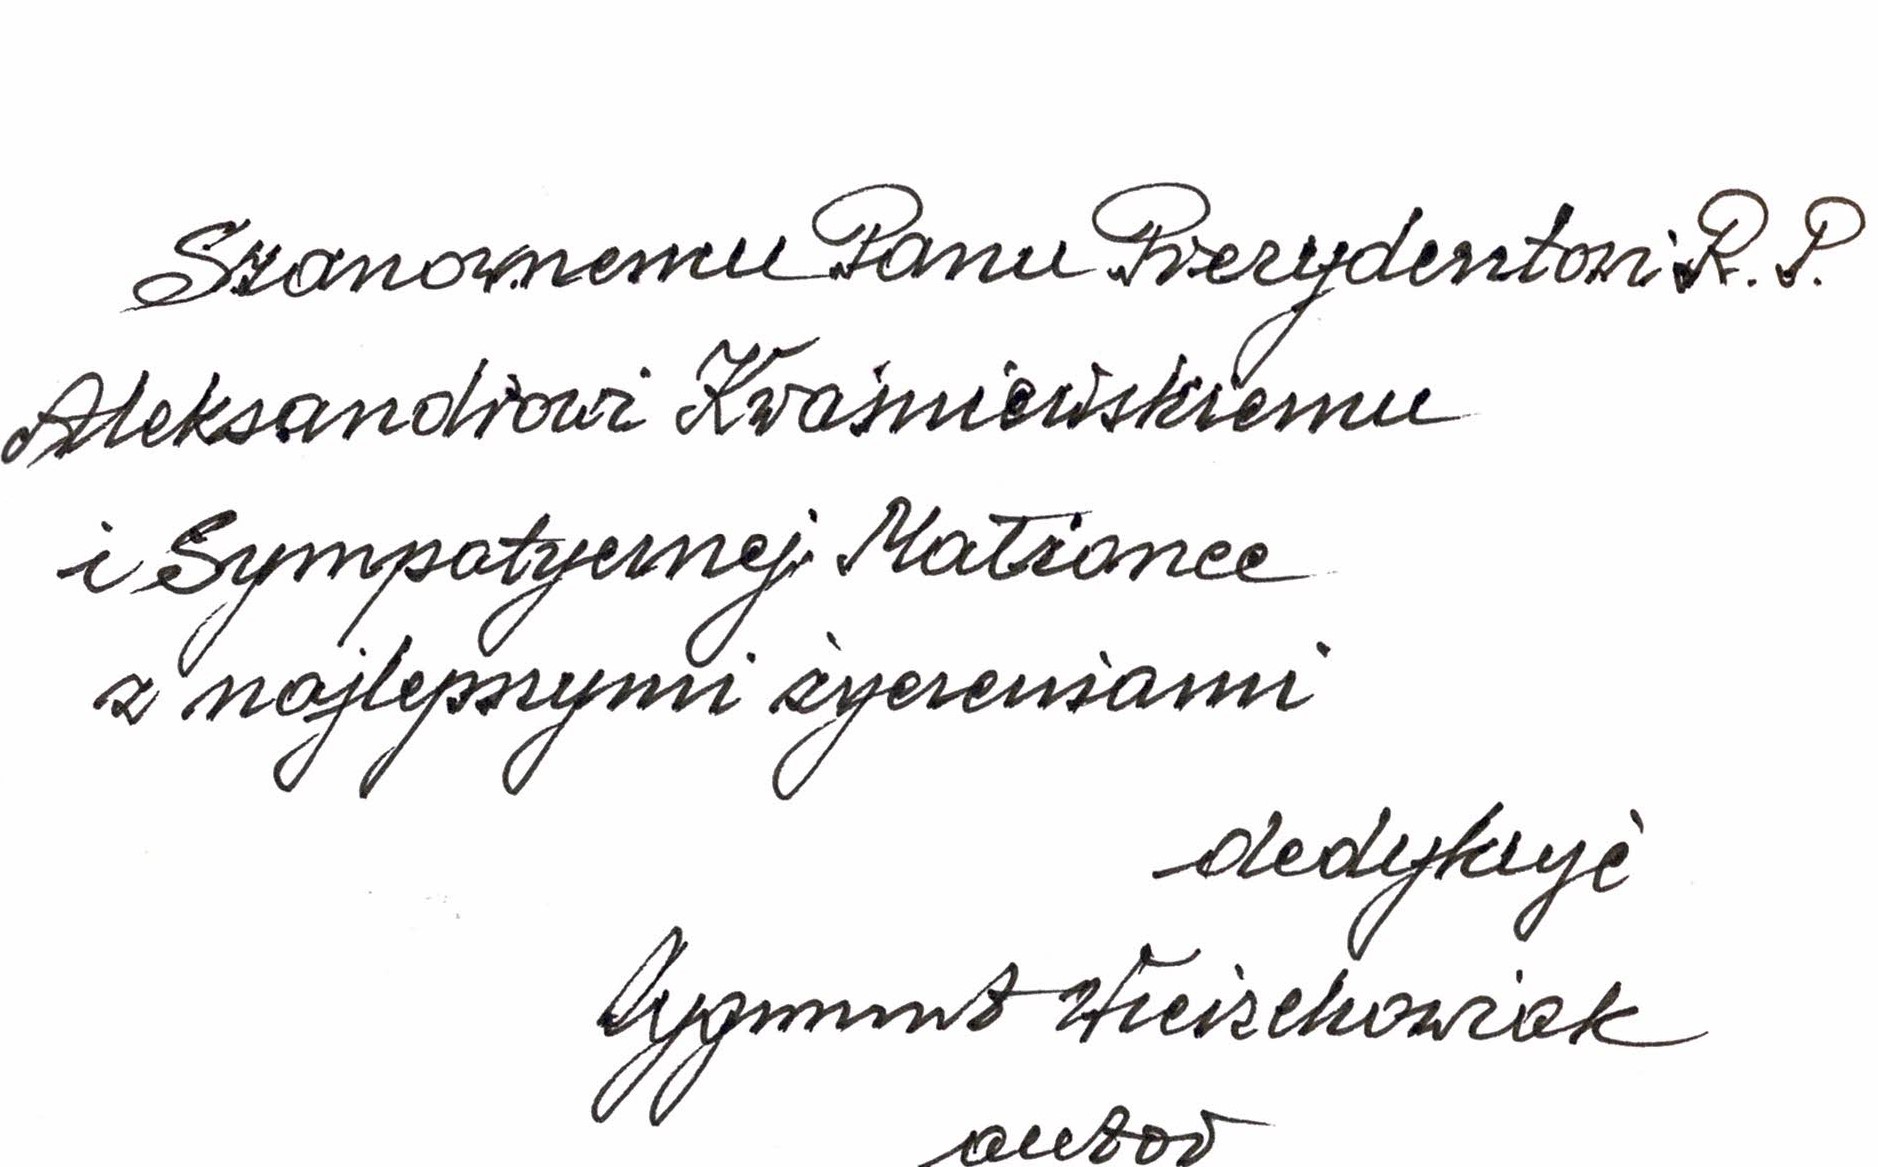 Szanownemu Panu Prezydentowi R.P.
Aleksandrowi Kwaśniewskiemu
i Sympatycznej Małżonce
z najlepszymi życzeniami
dedykuje
Zygmunt Wieichowiak
autor